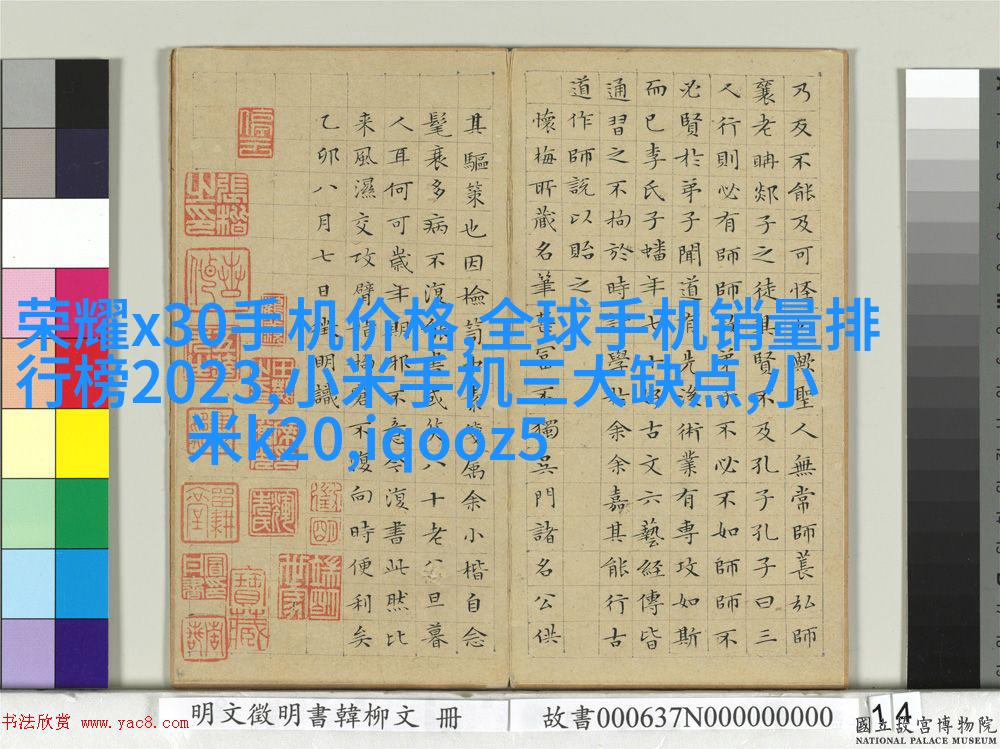 荣耀x30手机价格,全球手机销量排
行榜2023,小米手机三大缺点,小
米k20,iqooz5
乃反不能及可怪歟聖人無常師萇弘師
襄老聃郯子之徒其賢不及孔子孔子曰三
人行則必有師師弟子不必不如師師不
必賢於弟子聞道有先後術業有專攻如斯
而已李氏子蟠年十七好古文六藝經傳皆
通習之不拘於時學於余余嘉其能行古
道作師說以貽之
懷梅所藏名筆甚富不獨吳門諸名公供
其驅策也因檢笥中屬余小楷自念
髦衰多病不復作書或八十老公旦暮
人耳何可歲年期邪不意今復書此然比
来風濕交攻臂指不復向時便利矣
乙卯八月七日徵明識
明文徵明書韓柳文 冊
故書000637N000000000
14
國立故宮博物院
NATIONAL PALACE MUSEUM
书法欣赏
www.yac8.com